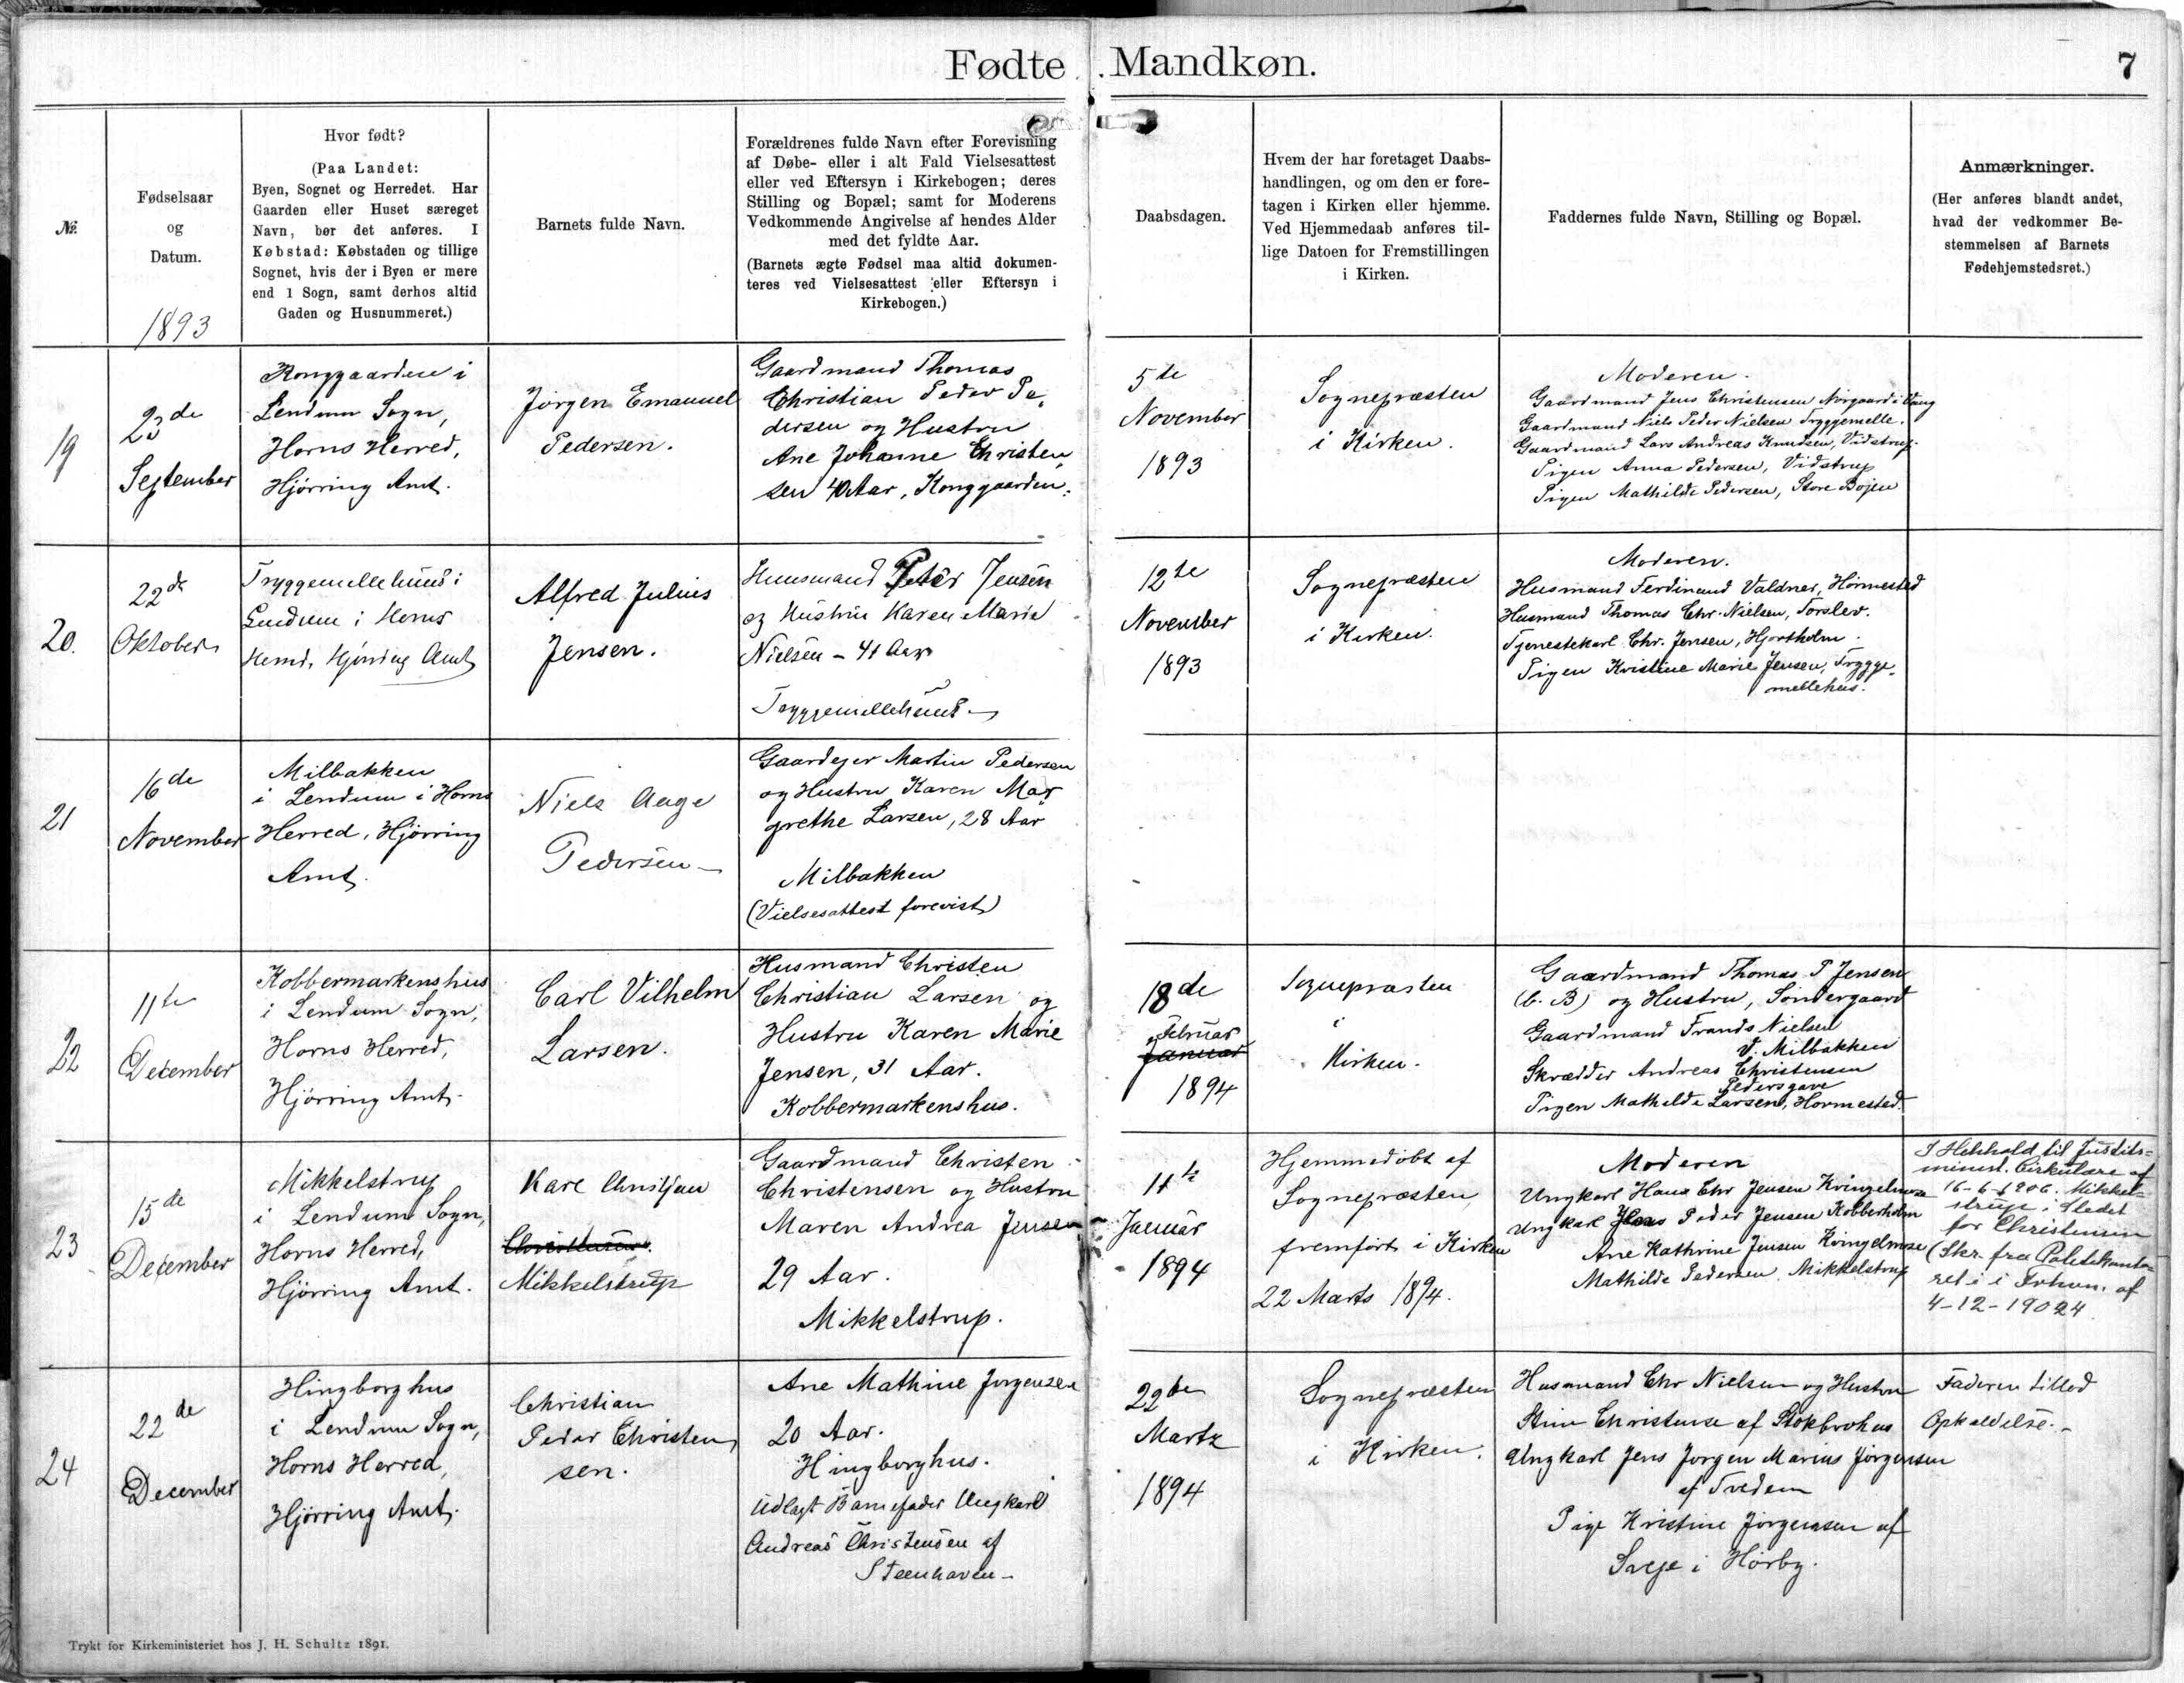 Fødte Mandkøn.
7
№
Fødselsaar
og
Datum.
1893
Hvor født?
(Paa Landet:
Byen, Sognet og Herredet. Har
Gaarden eller Huset særeget
Navn, bør det anføres. I
Købstad: Købstaden og tillige
Sognet, hvis der i Byen er mere
end 1 Sogn, samt derhos altid
Gaden og Husnummeret.)
Barnets fulde Navn.
Forældrenes fulde Navn efter Forevisning
af Døbe- eller i alt Fald Vielsesattest
eller ved Eftersyn i Kirkebogen; deres
Stilling og Bopæl; samt for Moderens
Vedkommende Angivelse af hendes Alder
med det fyldte Aar.
(Barnets ægte Fødsel maa altid dokumen-
teres ved Vielsesattest eller Eftersyn i
Kirkebogen.)
Daabsdagen.
Hvem der har foretaget Daabs-
handlingen, og om den er fore-
tagen i Kirken eller hjemme.
Ved Hjemmedaab anføres til-
lige Datoen for Fremstillingen
i Kirken.
Faddernes fulde Navn, Stilling og Bopæl.
Anmærkninger.
(Her anføres blandt andet,
hvad der vedkommer Be-
stemmelsen af Barnets
Fødehjemstedsret.)
19
23de
September
Konggaarden i
Lendum Sogn,
Horns Herred,
Hjørring Amt.
Jørgen Emanuel
Pedersen.
Gaardmand Thomas
Christian Peder Pe-
dersen og Hustru
Ane Johanne Christen-
sen 40 Aar, Konggaarden.
5te
November
1893
Sognepræsten
i Kirken.
Moderen.
Gaardmand Jens Christensen Nørgaard i Vang
Gaardmand Niels Peder Nielsen Tryggemelle.
Gaardmand Lars Andreas Knudsen, Vidstrup.
Pigen Anna Pedersen, Vidstrup
Pigen Mathilde Pedersen, Store Bøjen
20.
22de
Oktober
Tryggemellehuus i
Lendum i Horns
Herred, Hjørring Amt
Alfred Julius
Jensen.
Huusmand Peter Jensen
og Hustru Karen Marie
Nielsen - 41 Aar
Tryggemellehuus -
12te
November
1893
Sognepræsten
i Kirken.
Moderen.
Husmand Ferdinand Valdner, Hørmested
Husmand Thomas Chr. Nielsen, Torslev.
Tjenestekarl Chr. Jensen, Hjortholm.
Pigen Kristine Marie Jensen, Trygge-
mellehus.
21
16de
November
Milbakken
i Lendum i Horns
Herred, Hjørring
Amt.
Niels Aage
Pedersen -
Gaardejer Martin Pedersen
og Hustru Karen Mar-
grethe Larsen, 28 Aar
Milbakken
(Vielsesattest forevist)
22
11te
December
Kobbermarkenshus
i Lendum Sogn,
Horns Herred,
Hjørring Amt.
Carl Vilhelm
Larsen.
Husmand Christen
Christian Larsen og
Hustru Karen Marie
Jensen, 31 Aar.
Kobbermarkenshus.
18de
Februar
Januar
1894
Sognepræsten
i
Kirken.
Gaardmand Thomas P Jensen
(C. B) og Hustru, Søndergaard
Gaardmand Frands Nielsen
V. Milbakken
Skrædder Andreas Christensen
Pedersgave
Pigen Mathilde Larsen, Hormested.
23
15de
December
Mikkelstrup
i Lendum Sogn,
Horns Herred,
Hjørring Amt.
Karl Christjan
Christensen.
Mikkelstrup
Gaardmand Christen
Christensen og Hustru
Maren Andrea Jensen
29 Aar.
Mikkelstrup.
11te
Januar
1894
Hjemmedøbt af
Sognepræsten,
fremført i Kirken
22 Marts 1894.
Moderen
Ungkarl Hans Chr Jensen Kringelmose
Ungkarl Jens Peder Jensen Kobberholm
Ane Kathrine Jensen Kringelmose
Mathilde Pedersen Mikkelstrup
I Henhold til Justits-
minist. Cirkulære af
16-6-1906. Mikkel-
strup i Stedet
for Christensen
(Skr. fra Politikonto-
ret i Frhvn. af
4-12-1924
24
22de
December
Hingborghus
i Lendum Sogn,
Horns Herred,
Hjørring Amt.
Christian
Peder Christen-
sen.
Ane Mathine Jørgensen
20 Aar.
Hingborghus.
Udlagt Barnefader Ungkarl
Andreas Christensen af
Steenhaven -
22de
Marts
1894
Sognepræsten
i Kirken.
Husmand Chr Nielsen og Hustru
Stine Christense af Stokbrohus
Ungkarl Jens Jørgen Marius Jørgensen
af Tveden
Pige Kristine Jørgensen af
i Hørby.
Faderen tillod
Opkaldelse. -
Trykt for Kirkeministeriet hos J. H. Schultz 1891.